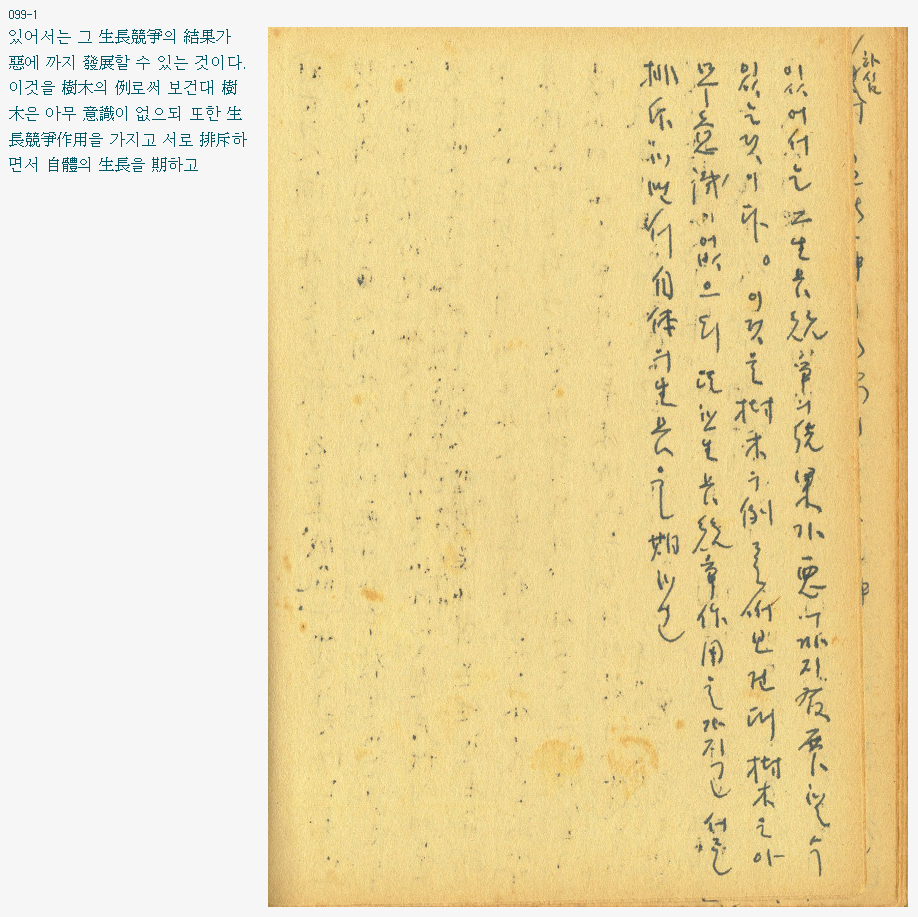 099-1
있어서는 그 生長競爭의 結果가
惡에 까지 發展할 수 있는 것이다.
이것을 樹木의 例로써 보건대 樹
木은 아무 意識이 없으되 또한 生
長競爭作用을 가지고 서로 排斥하
면서 自體의 生長을 期하고
있어서는 그 生長競爭의 結果가 惡에 까지 發展할 수
있는 것이다。이것을 樹木의 例로써 보건대 樹木은 아
무 意識이 없으되 또한 生長競爭作用을 가지고 서로
排斥하면서 自体의 生長을 期하고